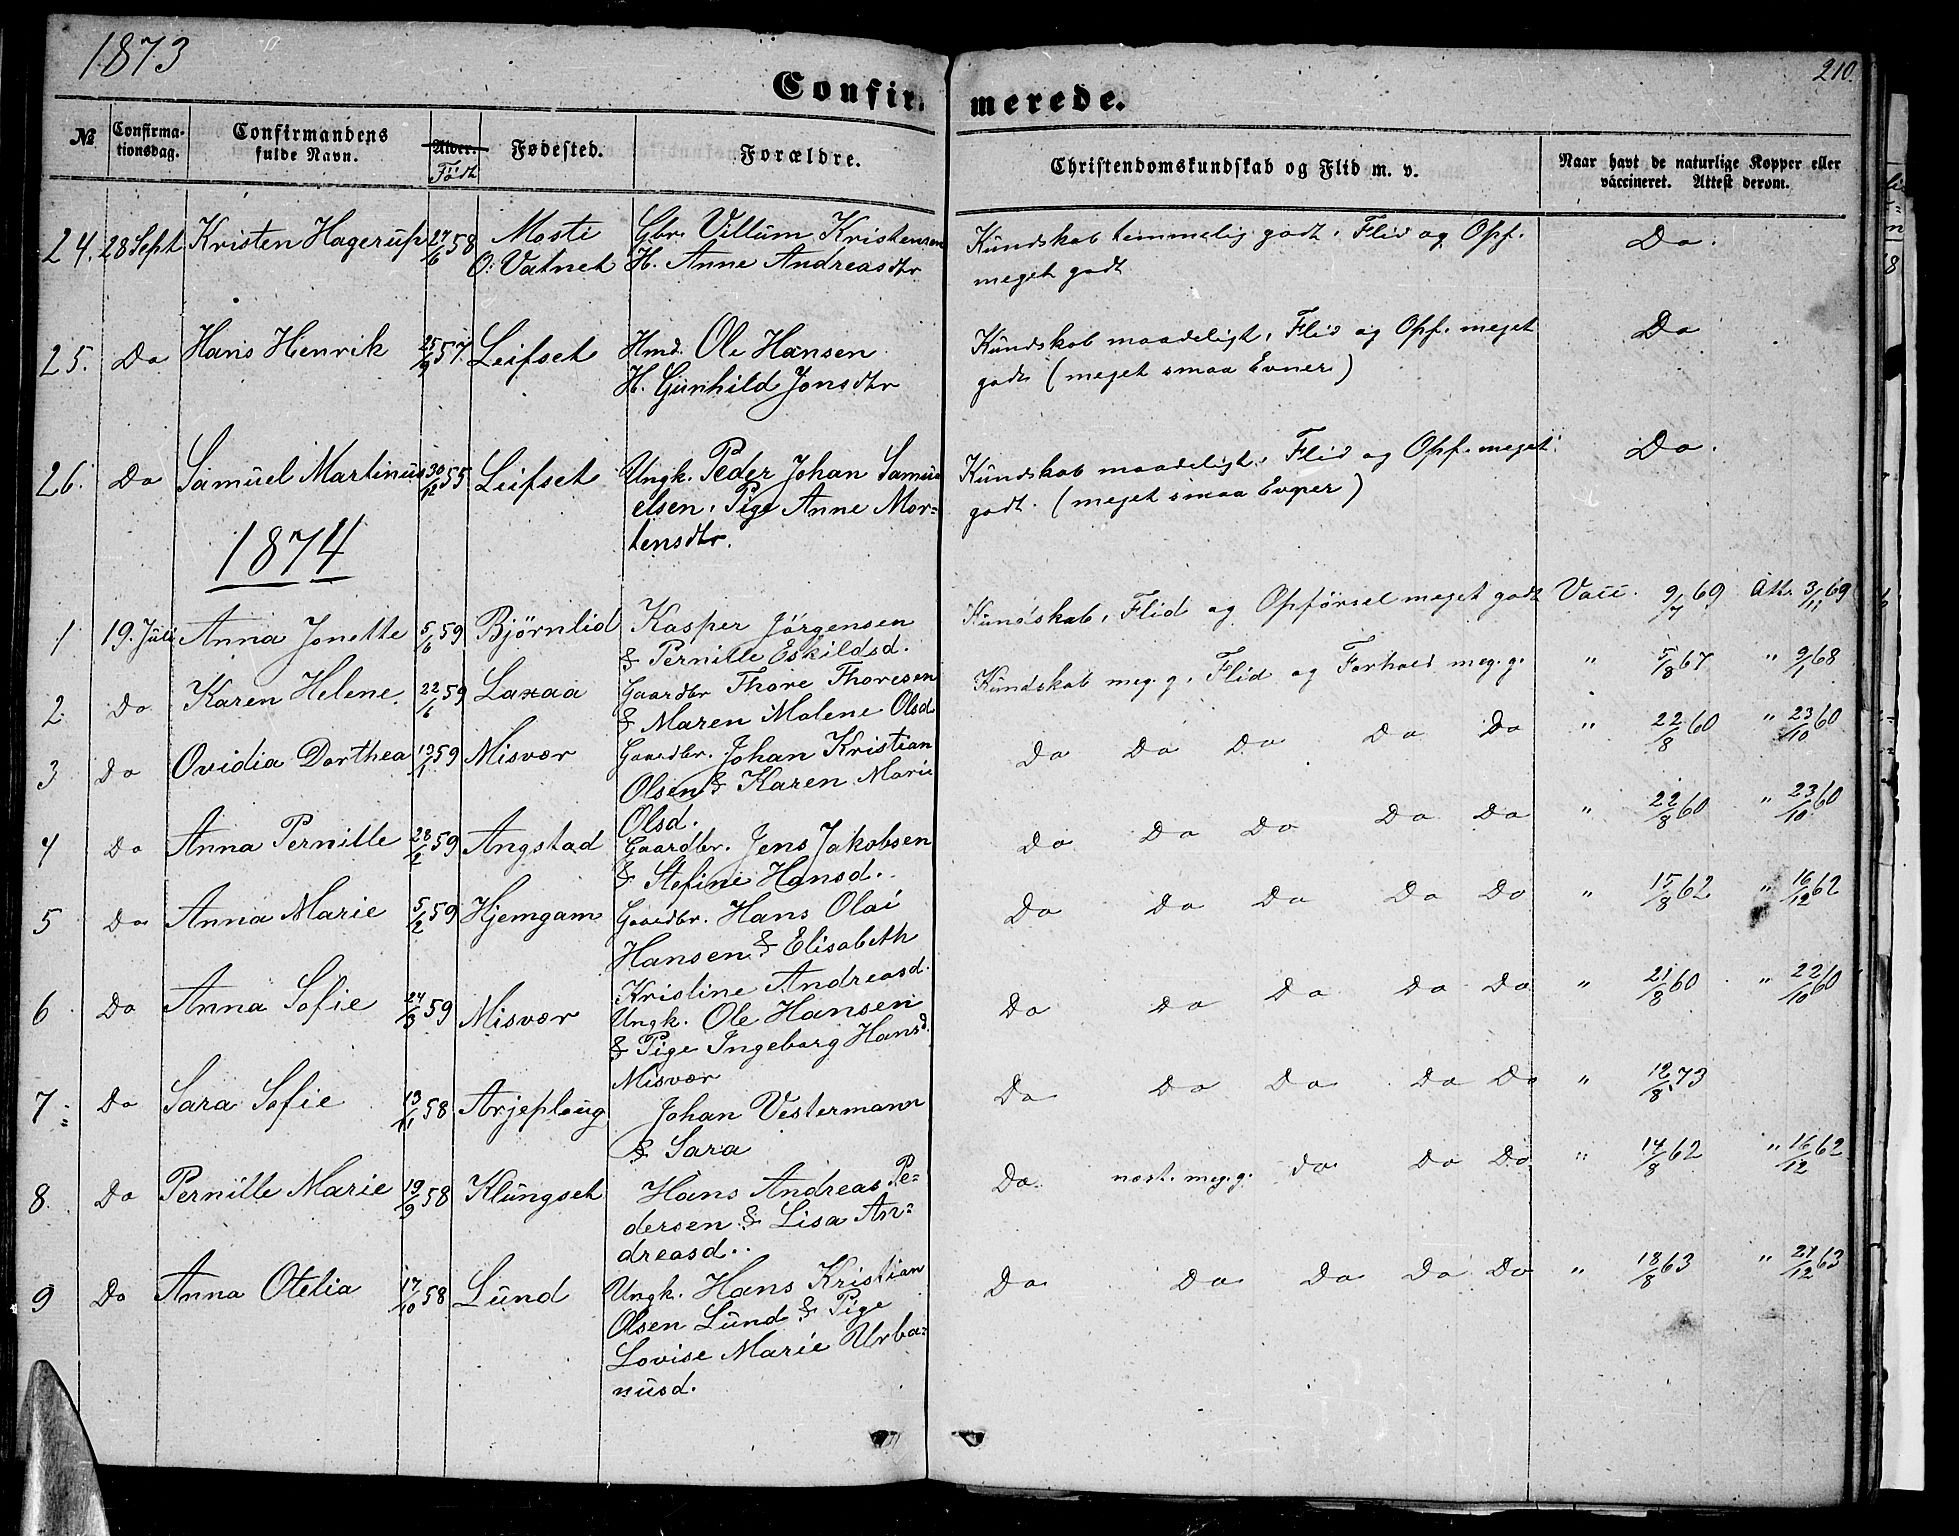 1873
210.
Confirmerede.
№ Confirmationsdag. Confirmandens fulde Navn. Alder. Født Fødested. Forældre. Christendomskundskab og Flid m. v. Naar havt de naturlige Kopper eller vaccineret. Attest derom.
24. 28 Sept Kristen Hagerup 27/6 58 Mosti Gbr. Villum Kristensen Kundskab temmelig godt, Flid og Opf. Do.
O: Vatnet H. Anne Andreasdtr meget godt
25. Do Hans Henrik 25/9 57. Leifset Hmd. Ole Hansen Kundskab maadeligt, Flid og Opf. meget Do
H. Gunhild Jonsdtr godt (meget smaa Evner)
26. Do Samuel Martinus 30/12 55 Leifset Ungk. Peder Johan Samu- Kundskab maadeligt, Flid og Opf. meget Do.
elsen, Pige Anne Mor- godt. (meget smaa Evner)
tensdtr.
1874
1 19. Juli Anna Jonette 5/6 59 Bjørnlid Kasper Jørgensen Kundskab, Flid og Opførsel meget godt Vacc. 9/7 69 Att. 3/11 69
& Pernille Eskildsd.
2. Do Karen Helene 22/6 59 Laxaa Gaardbr Thore Thoresen Kundskab meg. g. Flid og Forhold meg. g. " 5/8 67 " 9/1 68
& Maren Malene Olsd.
3 Do Ovidia Dorthea 13/1 59 Misvær Gaardbr. Johan Kristian Do Do Do Do Do " 22/8 60 " 23/10 60
Olsen & Karen Marie
Olsd.
4 Do Anna Pernille 28/2 59 Angstad Gaardbr. Jens Jakobsen Do Do Do Do Do " 22/8 60 " 23/10 60
& Stefine Hansd.
5 Do Anna Marie 5/2 59 Hjemgam Gaardbr. Hans Olai Do Do Do Do Do " 15/8 62 " 16/12 62
Hansen & Elisabeth
Kristine Andreasd.
6 Do Anna Sofie 24/3 59 Misvær Ungk. Ole Hansen Do Do Do Do Do " 21/8 60 " 22/10 60
& Pige Ingeborg Hansd.
Misvær
7 Do Sara Sofie 13/11 58 Arjeploug Johan Vestermann Do Do Do Do Do " 12/8 73
& Sara
8. Do Pernille Marie 19/9 58 Klungset Hans Andreas Pe- Do. næst. meg. g. do Do Do " 14/8 62 " 16/12 62
dersen & Lisa An-
dreasd.
9 Do Anna Otelia 17/10 58 Lund Ungk. Hans Kristian Do Do Do Do Do " 18/8 63 " 21/12 63
Olsen Lund & Pige
Lovise Marie Urba-
nusd.